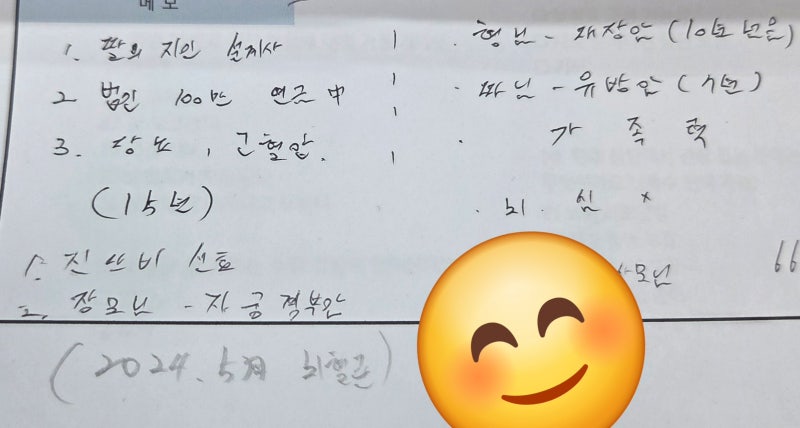 메모
1. 딸의 지인 설계사
2. 법인 100만 연금 中
3. 당뇨, 고혈압.
(15년)
1. 진쓰비 선호
2. 장모님 - 자궁경부암
(2024. 5月 뇌혈관)
· 형님 - 췌장암 (10年 년음)
· 따님 - 유방암 (7년)
· 가족력
· 뇌. 심 x
모님
66